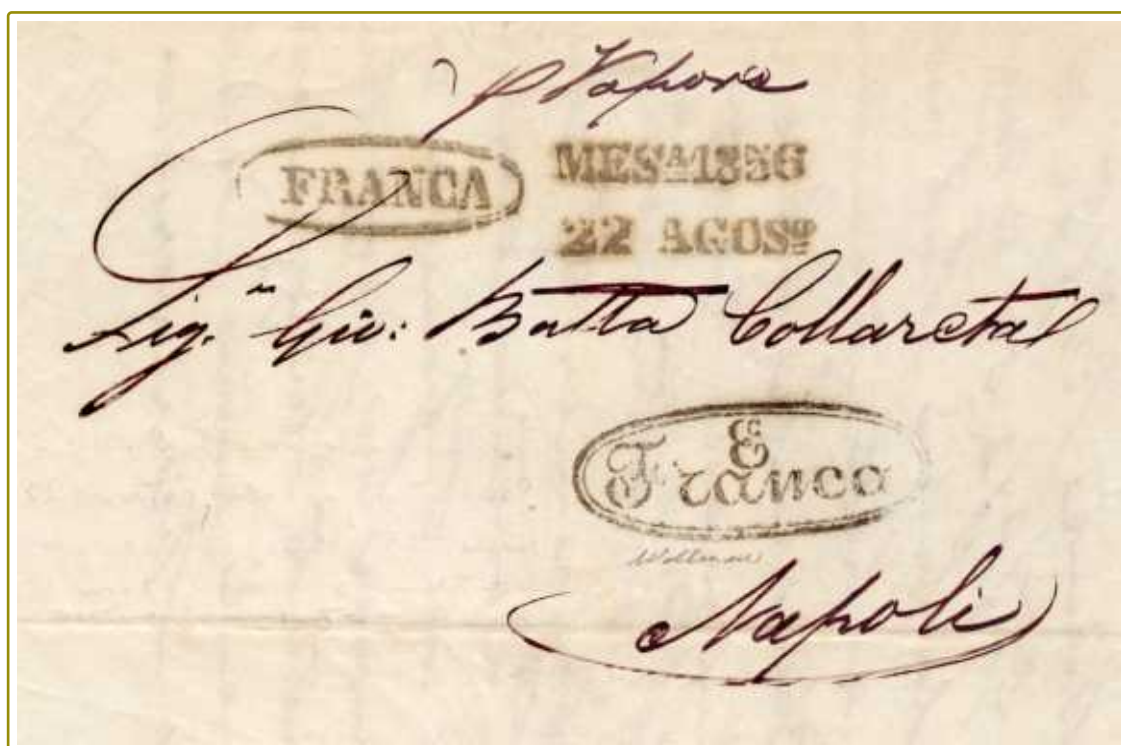 p Vapore
FRANCA
MESᴬ 1856
22 AGOSᵗᵒ
Sig.ʳ Gio: Batta Collareta
E
Franco
Napoli